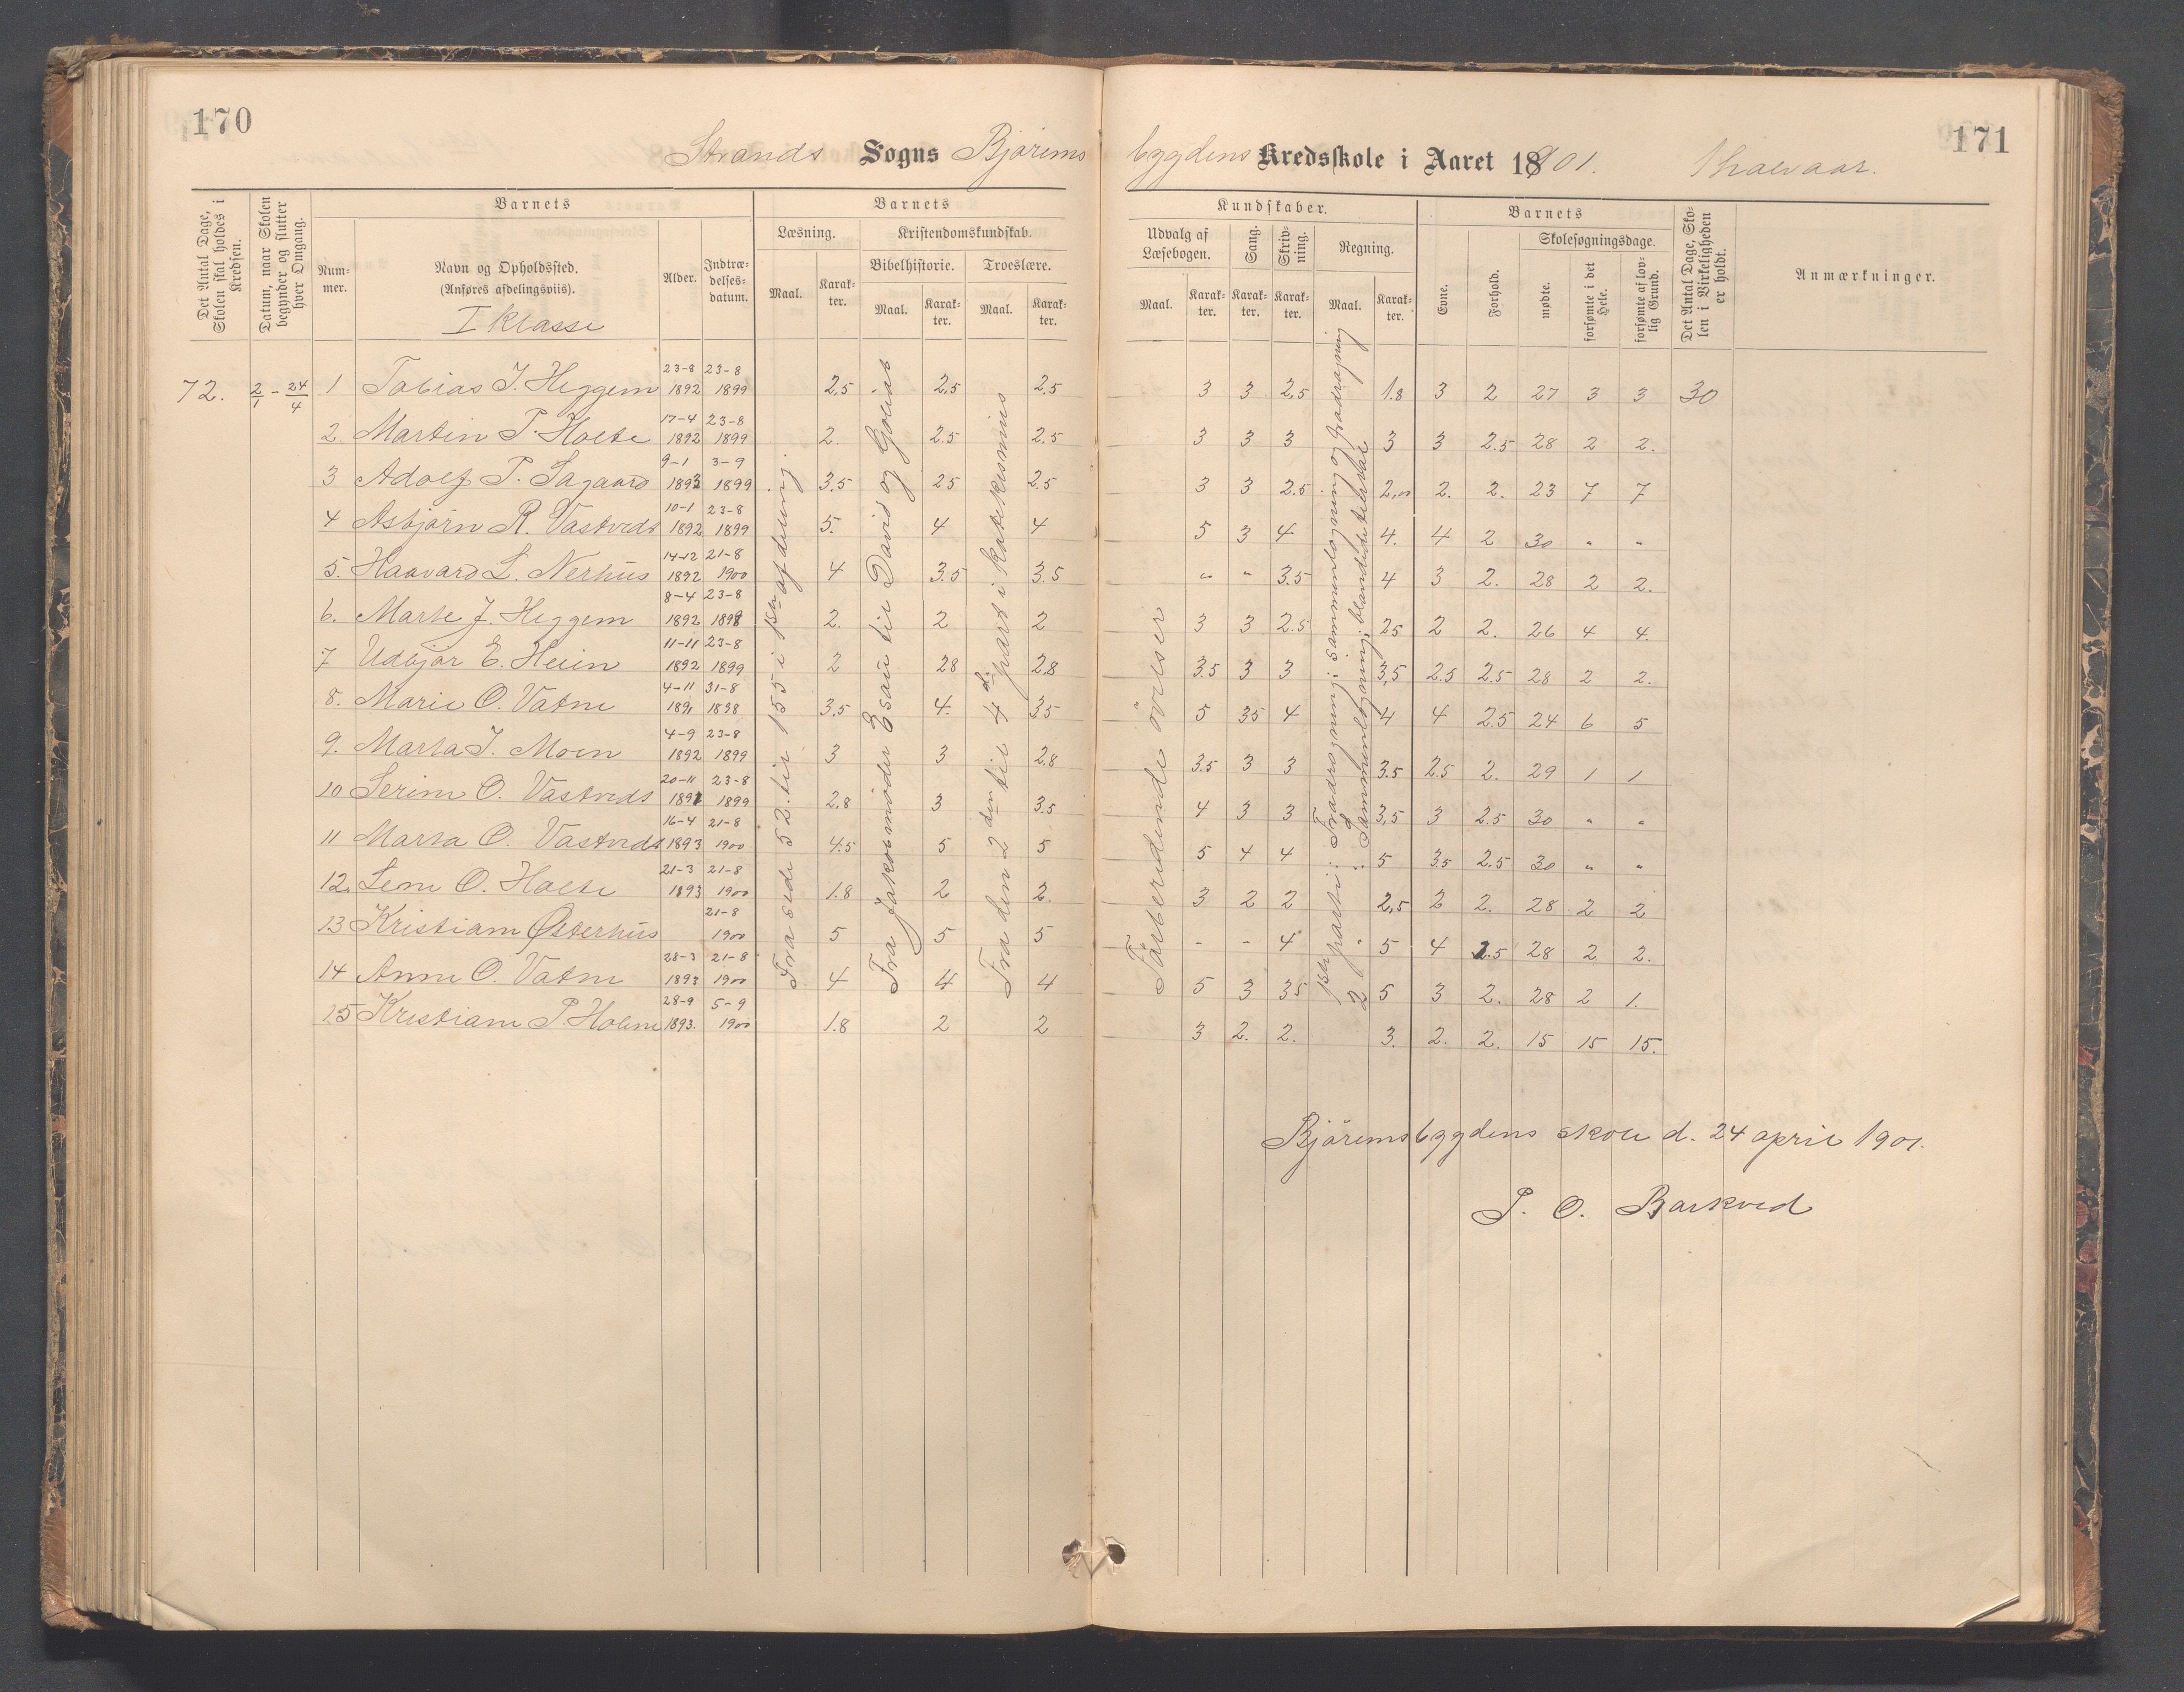 170
171
Strands Sogns Bjøreims bygdens Kredsskole i Aaret 1901. 1 halvaar.
Det Antal Dage, Skolen skal holdes i Kredsen.
Datum, naar Skolen begynder og slutter hver Omgang.
Barnets
Nummer.
Navn og Opholdssted.
(Anføres afdelingsviis).
I klasse
Alder.
Indtrædelsesdatum.
Barnets
Læsning.
Maal.
Karakter.
Kristendomskundskab.
Bibelhistorie.
Maal.
Karakter.
Troeslære.
Maal.
Karakter.
Kundskaber.
Udvalg af Læsebogen.
Maal.
Karakter.
Sang.
Karakter.
Skrivning.
Karakter.
Regning.
Maal.
Karakter.
Barnets
Evne.
Forhold.
Skolesøgningsdage.
mødte.
forsømte i det Hele.
forsømte af lovlig Grund.
Det Antal Dage, Skolen i Virkeligheden er holdt.
Anmærkninger.
72. 2/1 - 24/4 1 Tobias J. Heggem 23-8 1892 23-8 1899 2,5 2,5 2.5 3 3 2,5 1.8 3 2 27 3 3 30
2 Martin P. Holte 17-4 1892 23-8 1899 2. 2.5 2.5 3 3 3 3 3 2.5 28 2 2.
3 Adolf P. Sagaard 9-1 1893 3-9 1899 3.5 25 2.5 3 3 2.5 2,11 2. 2. 23 7 7
4 Asbjørn R. Vastveds 10-1 1892 23-8 1899 5. 4 4 5 3 4 4. 4 2 30 " "
5. Haavard L. Nerhus 14-12 1892 21-8 1900 4 3.5 3.5 " " 3.5 4 3 2. 28 2 2.
6. Marte J. Heggem 8-4 1892 23-8 1898 2. 2 2 3 3 2.5 25 2 2. 26 4 4.
7 Udbjør E. Heien 11-11 1892 23-8 1899 2 28 2,8 3.5 3 3 3,5 2.5 2.5 28 2 2.
8. Marie O. Vatne 4-11 1891 31-8 1898 3.5 4. 3.5 5 35 4 4 4 2.5 24 6 5
9. Marta J. Moen 4-9 1892 23-8 1899 3 3 2.8 3.5 3 3 3.5 2.5 2. 29 1 1
10 Serine O. Vastveds 20-11 1891 23-8 1899 2.8 3 3.5 4 3 3 3,5 3 2.5 30 " "
11 Marta O. Vastveds 16-4 1893 21-8 1900 4.5 5 5 5 4 4 5 3.5 2.5 30 " "
12. Lene O. Holte 21-3 1893 21-8 1900 1.8 2 2. 3 2 2 2,5 2 2. 28 2 2
13 Kristiane Østerhus 21-8 1900 5 5 5 - - 4 " 5 4 2.5 28 2 2.
14 Anne O. Vatne 28-3 1893 21-8 1900 4 4 4 5 3 3.5 5 3 2. 28 2 1.
15 Kristiane P. Holem 28-9 1893. 5-9 1900 1.8 2 2 3 2. 2. 3. 2. 2. 15 15 15.
Fra side 52 til 155 i 1ste afdeling.
Fra Jakommøder Esau til David og Goliat
Fra den 2den til 4de part i katekesmus
Forberedende øvelser
1ste parti: Fradragning; sammenlægning og fradragning
2 " : Sammenlægning; blandede tierval
Bjøreimsbygdens skole d. 24 april 1901.
P. O. Barkved